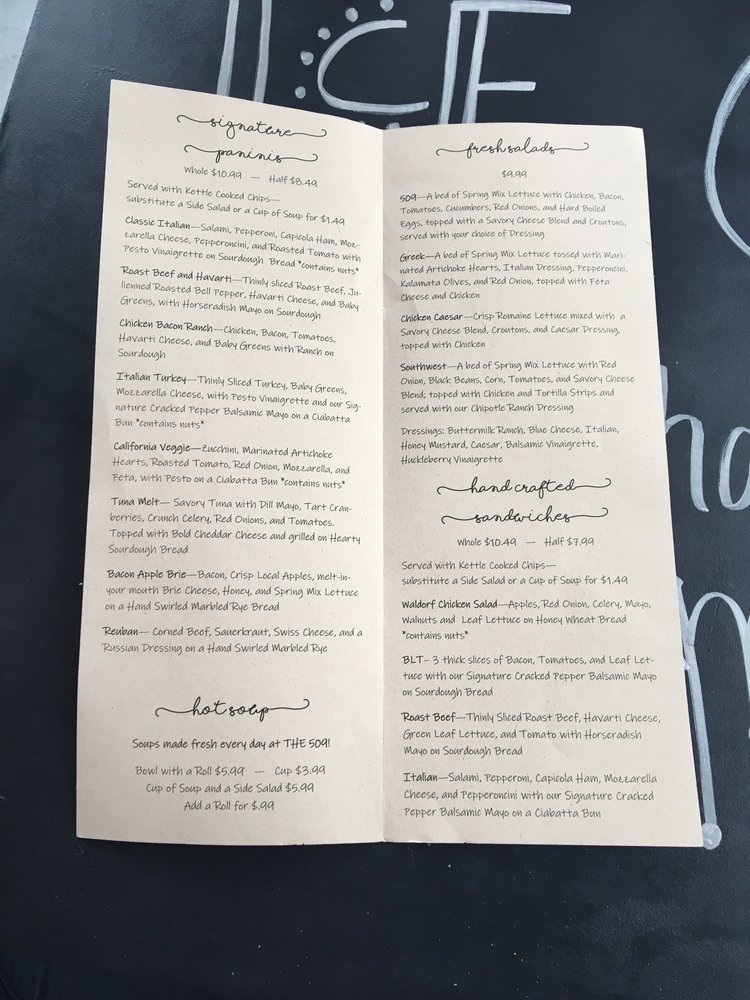 ICE
signature
paninis
Whole $10.99 — Half $8.49
Served with Kettle Cooked Chips—
substitute a Side Salad or a Cup of Soup for $1.49
Classic Italian—Salami, Pepperoni, Capicola Ham, Moz-
zarella Cheese, Pepperoncini, and Roasted Tomato with
Pesto Vinaigrette on Sourdough Bread *contains nuts*
Roast Beef and Havarti—Thinly sliced Roast Beef, Ju-
lienned Roasted Bell Pepper, Havarti Cheese, and Baby
Greens, with Horseradish Mayo on Sourdough
Chicken Bacon Ranch—Chicken, Bacon, Tomatoes,
Havarti Cheese, and Baby Greens with Ranch on
Sourdough
Italian Turkey—Thinly Sliced Turkey, Baby Greens,
Mozzarella Cheese, with Pesto Vinaigrette and our Sig-
nature Cracked Pepper Balsamic Mayo on a Ciabatta
Bun *contains nuts*
California Veggie—Zucchini, Marinated Artichoke
Hearts, Roasted Tomato, Red Onion, Mozzarella, and
Feta, with Pesto on a Ciabatta Bun *contains nuts*
Tuna Melt— Savory Tuna with Dill Mayo, Tart Cran-
berries, Crunch Celery, Red Onions, and Tomatoes.
Topped with Bold Cheddar Cheese and grilled on Hearty
Sourdough Bread
Bacon Apple Brie—Bacon, Crisp Local Apples, melt-in-
your mouth Brie Cheese, Honey, and Spring Mix Lettuce
on a Hand Swirled Marbled Rye Bread
Reuban— Corned Beef, Sauerkraut, Swiss Cheese, and a
Russian Dressing on a Hand Swirled Marbled Rye
hot soup
Soups made fresh every day at THE 509!
Bowl with a Roll $5.99 — Cup $3.99
Cup of Soup and a Side Salad $5.99
Add a Roll for $.99
fresh salads
$9.99
509—A bed of Spring Mix Lettuce with Chicken, Bacon,
Tomatoes, Cucumbers, Red Onions, and Hard Boiled
Eggs, topped with a Savory Cheese Blend and Croutons,
served with your choice of Dressing
Greek—A bed of Spring Mix Lettuce tossed with Mari-
nated Artichoke Hearts, Italian Dressing, Pepperoncini,
Kalamata Olives, and Red Onion, topped with Feta
Cheese and Chicken
Chicken Caesar—Crisp Romaine Lettuce mixed with a
Savory Cheese Blend, Croutons, and Caesar Dressing,
topped with Chicken
Southwest—A bed of Spring Mix Lettuce with Red
Onion, Black Beans, Corn, Tomatoes, and Savory Cheese
Blend; topped with Chicken and Tortilla Strips and
served with our Chipotle Ranch Dressing
Dressings: Buttermilk Ranch, Blue Cheese, Italian,
Honey Mustard, Caesar, Balsamic Vinaigrette,
Huckleberry Vinaigrette
hand crafted
sandwiches
Whole $10.49 — Half $7.99
Served with Kettle Cooked Chips—
substitute a Side Salad or a Cup of Soup for $1.49
Waldorf Chicken Salad—Apples, Red Onion, Celery, Mayo,
Walnuts and Leaf Lettuce on Honey Wheat Bread
*contains nuts*
BLT— 3 thick slices of Bacon, Tomatoes, and Leaf Let-
tuce with our Signature Cracked Pepper Balsamic Mayo
on Sourdough Bread
Roast Beef—Thinly Sliced Roast Beef, Havarti Cheese,
Green Leaf Lettuce, and Tomato with Horseradish
Mayo on Sourdough Bread
Italian—Salami, Pepperoni, Capicola Ham, Mozzarella
Cheese, and Pepperoncini with our Signature Cracked
Pepper Balsamic Mayo on a Ciabatta Bun